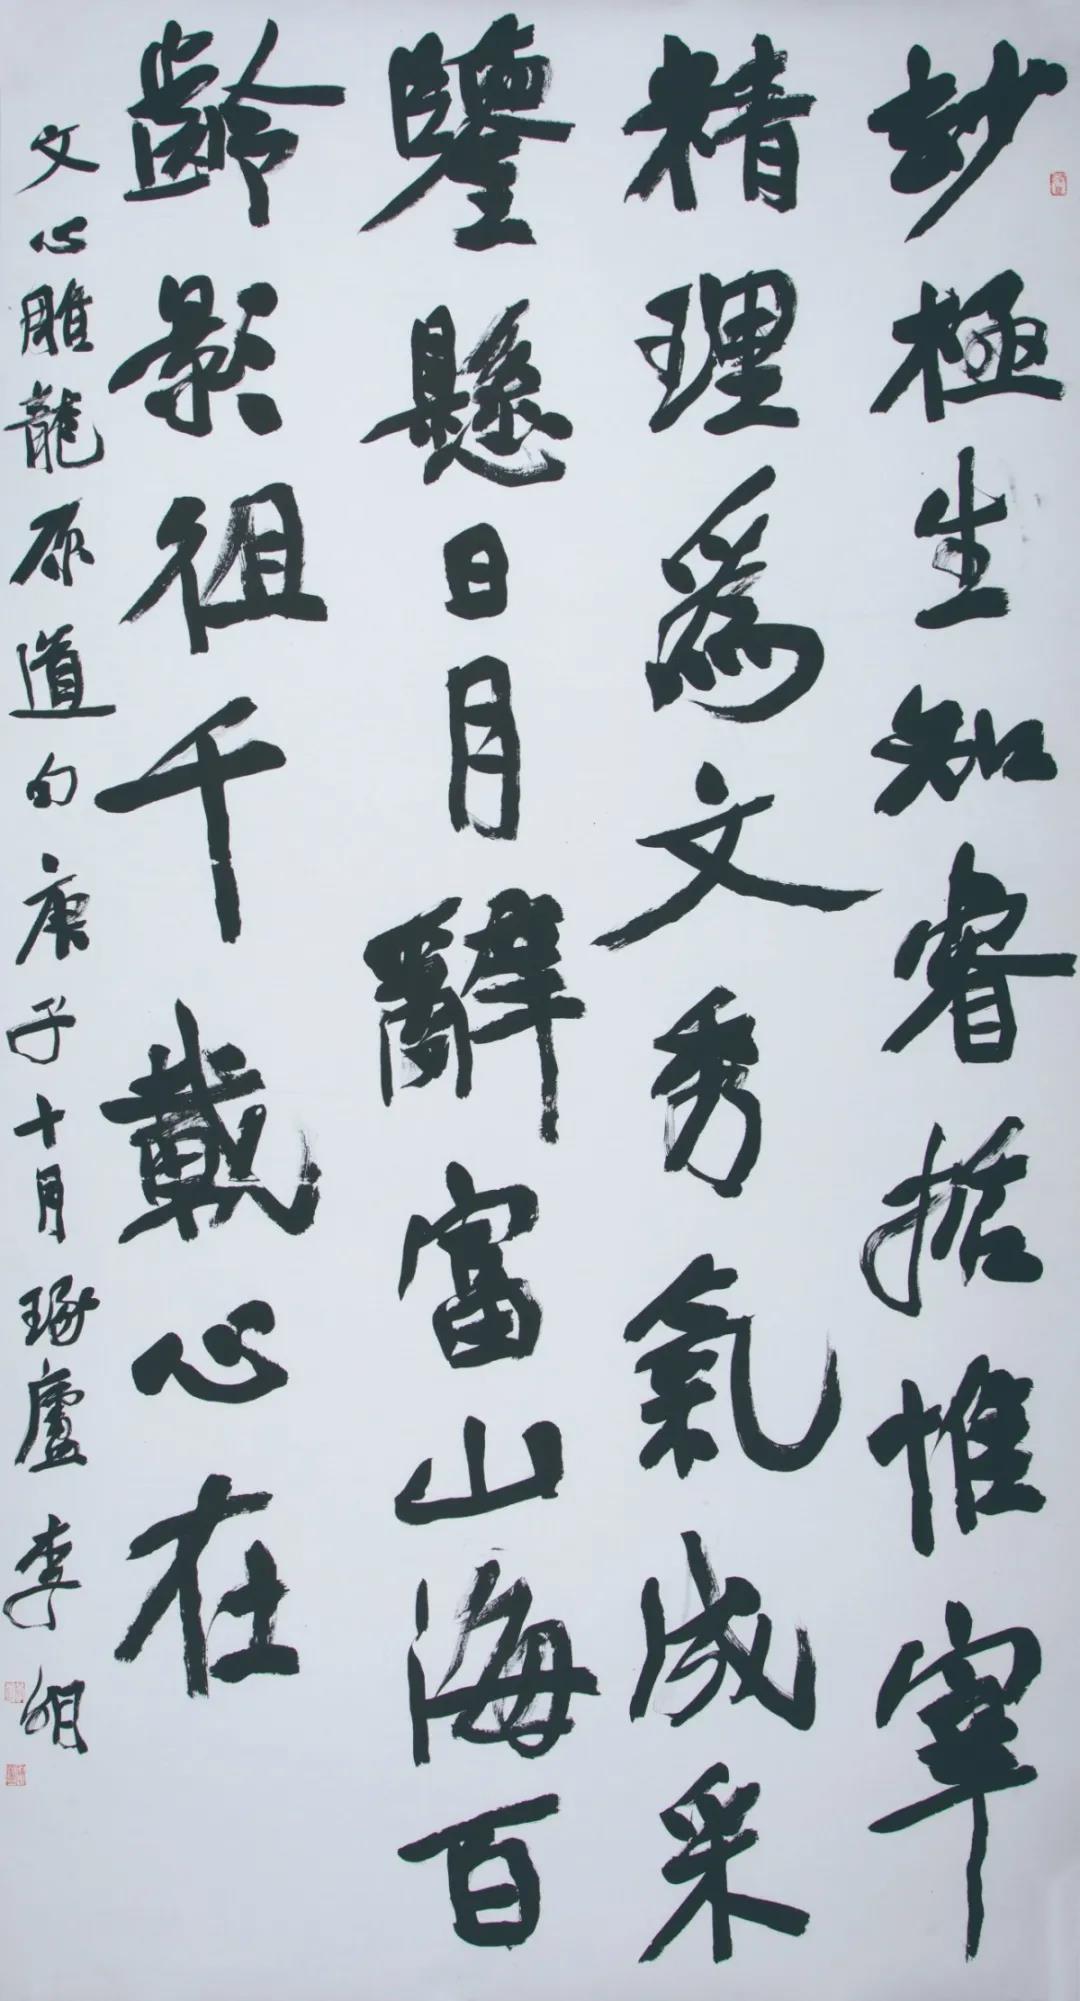 妙極生知睿哲惟宰
精理為文秀氣成采
鑒懸日月辭富山海百
齡影徂千載心在
文心雕龍原道句庚子十月琢廬李明